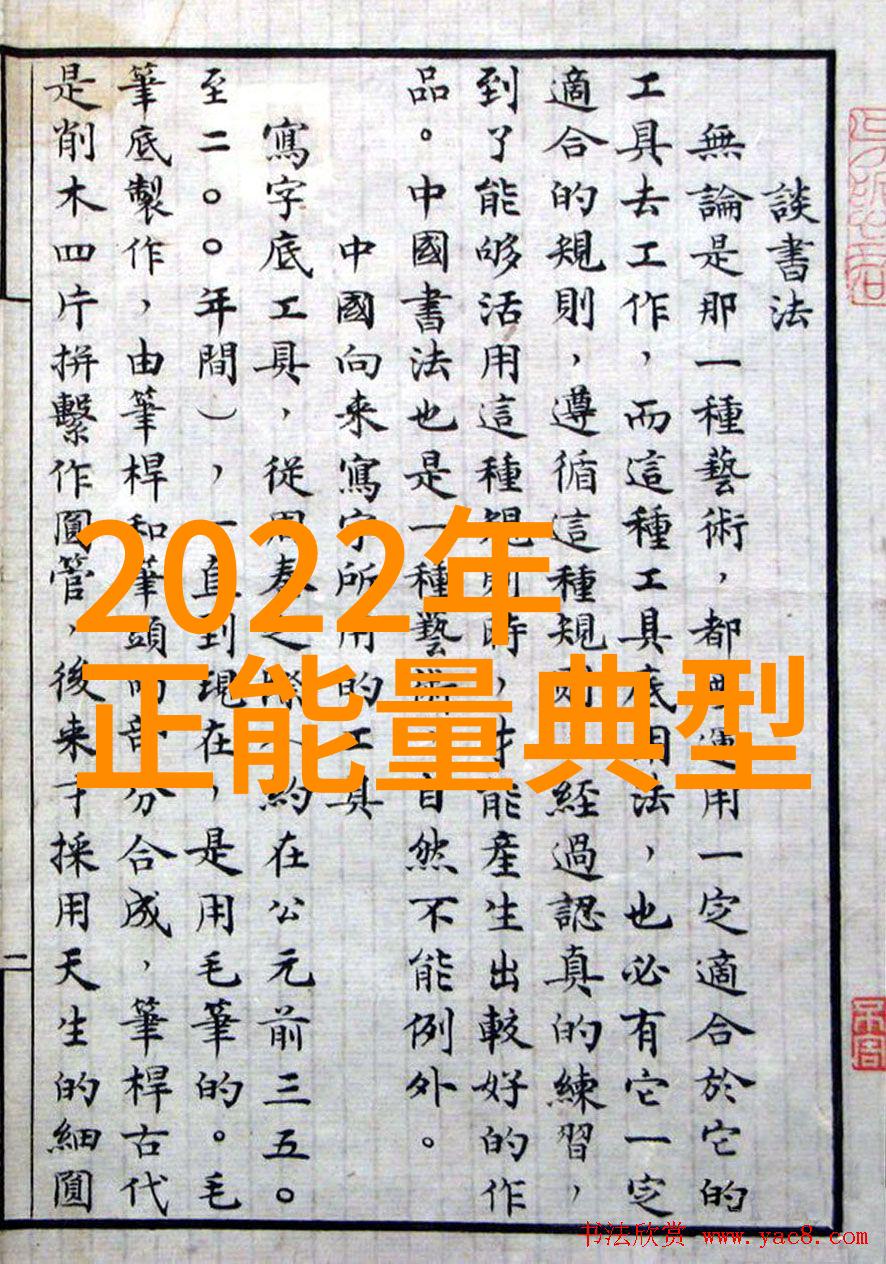 談書法
無論是那一種藝術，都運用一定適合於它的
工具去工作，而這種工具底用法，也必有它一定
適合的規則，遵循這種規則，經過認真的練習，
到了能够活用這種規則時，才能產生出較好的作
品。中國書法也是一種藝術，自然不能例外。
中國向來寫字所用的工具
寫字底工具，從周春之際約在公元前三五〇
至二〇〇年間），一直到現在，是用毛筆的。毛
筆底製作，由筆桿和筆頭兩部分合成，筆桿古代
是削木四片拼繫作圓管，後來才採用天生的細圓
二
2022年
正能量典型
书法欣赏 www.yac8.com